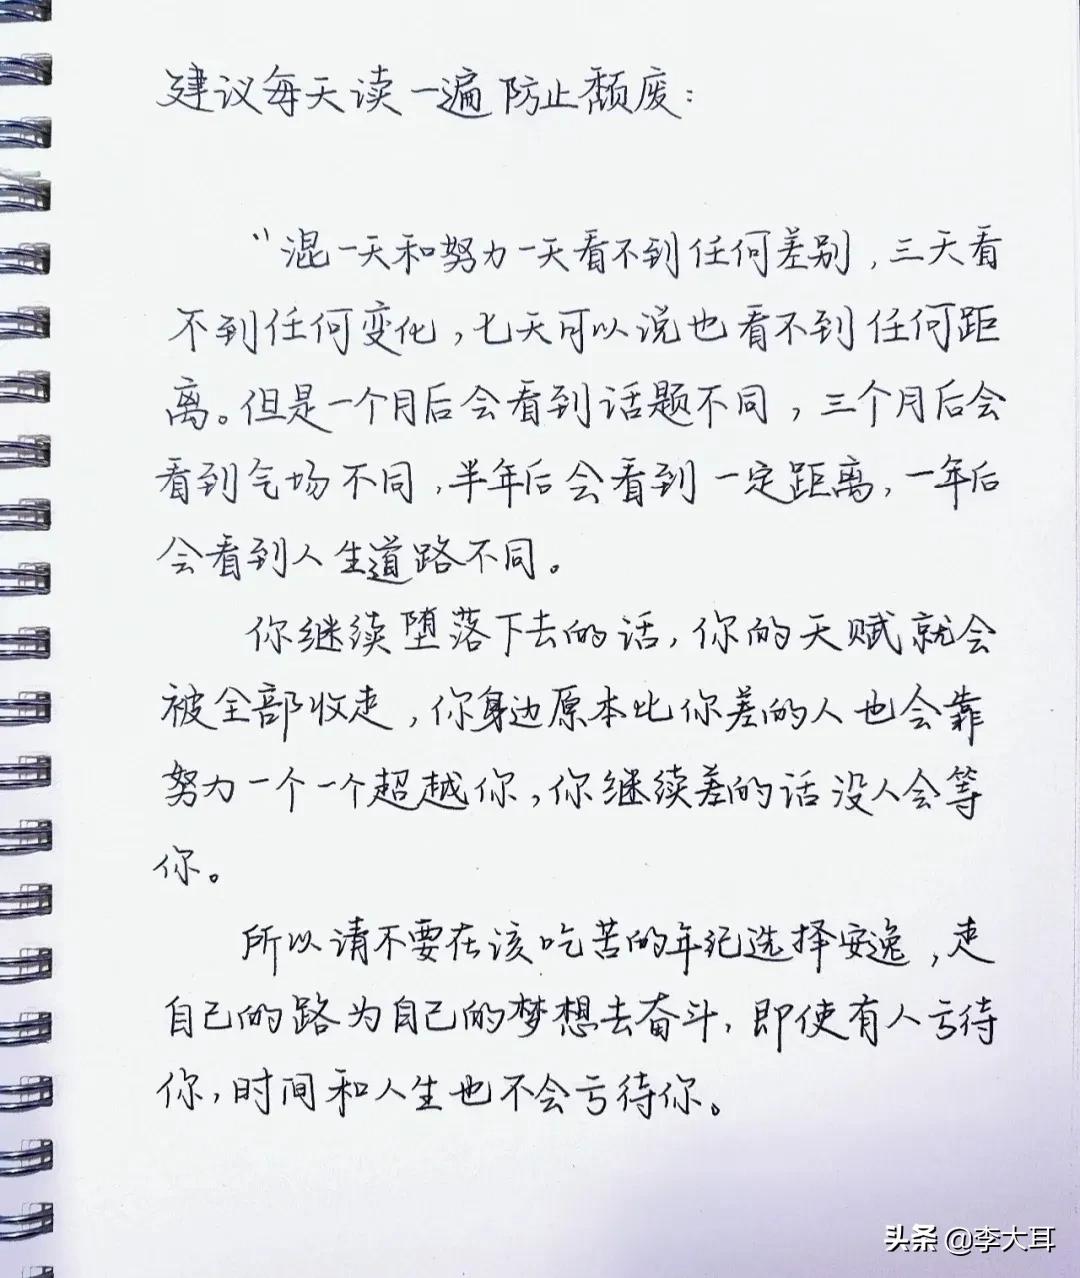 建议每天读一遍防止颓废：
“混一天和努力一天看不到任何差别，三天看
不到任何变化，七天可以说也看不到任何距
离。但是一个月后会看到话题不同，三个月后会
看到气场不同，半年后会看到一定距离，一年后
会看到人生道路不同。
你继续堕落下去的话，你的天赋就会
被全部收走，你身边原本比你差的人也会靠
努力一个一个超越你，你继续差的话没人会等
你。
所以请不要在该吃苦的年纪选择安逸，走
自己的路为自己的梦想去奋斗，即使有人亏待
你，时间和人生也不会亏待你。
头条 @李大耳